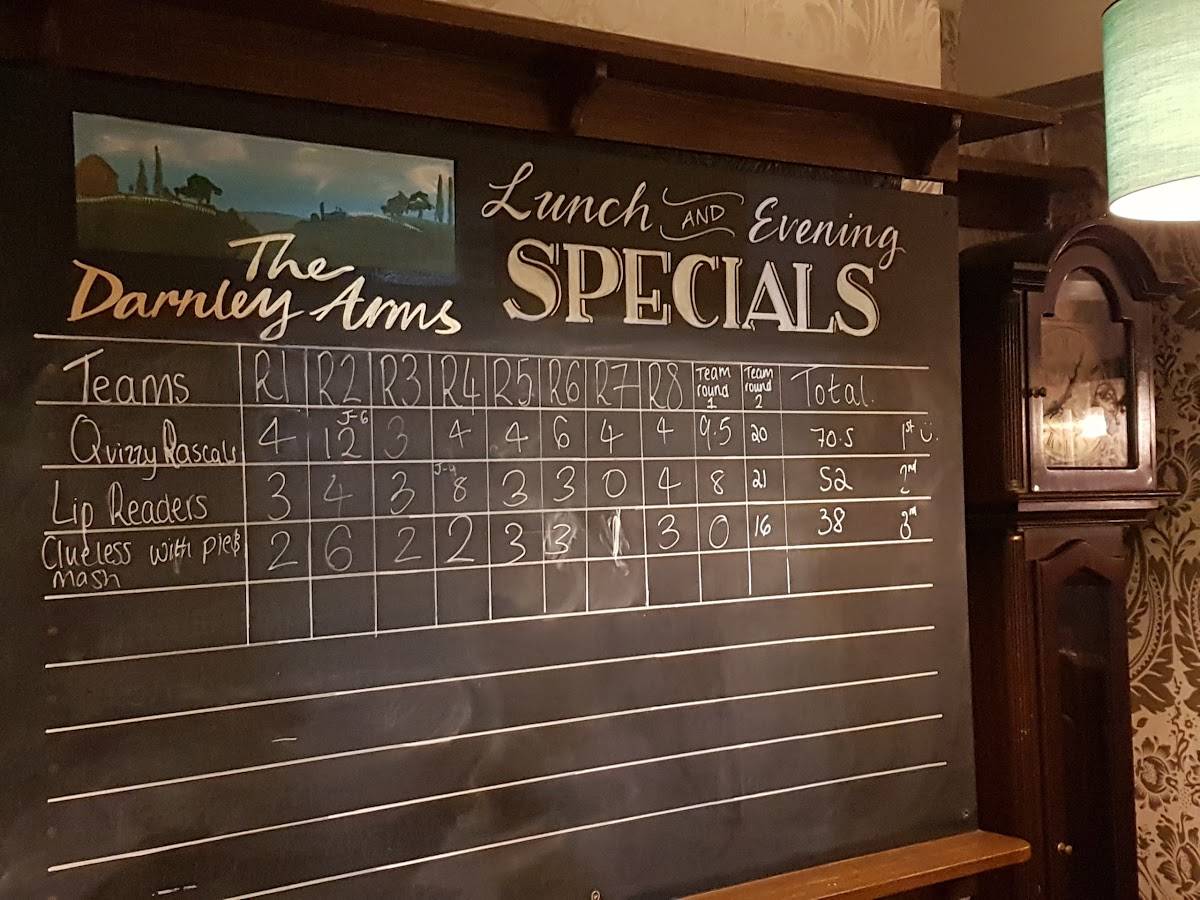 The
Darnley Arms
Lunch AND Evening
SPECIALS
Teams R1 R2 R3 R4 R5 R6 R7 R8 Team round 1 Team round 2 Total.
Quizzy Rascals 4 J-6 12 3 4 4 6 4 4 9.5 20 70.5 1st
Lip Readers 3 4 3 J-4 8 3 3 0 4 8 21 52 2nd
Clueless with pie & 2 6 2 2 3 3 1 3 0 16 38 3rd
mash